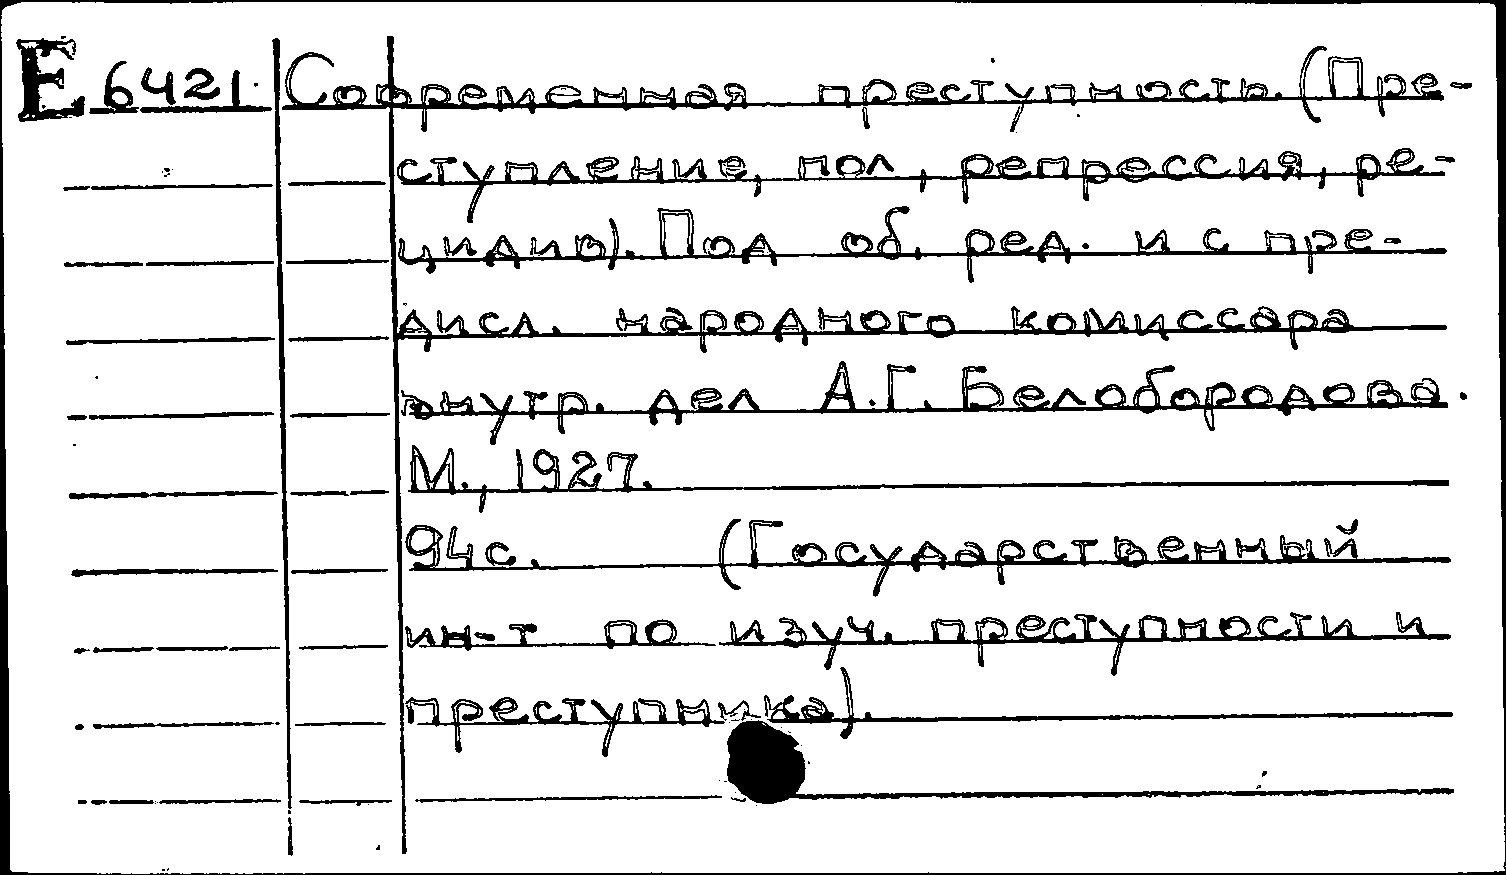 Е 6421 Современная преступность. (Пре-
ступление, пол, репрессия, ре-
цидив). Под об. ред. и с пре-
дисл. народного комиссара
внутр. дел А.Г. Белобородова.
М., 1927.
94с. (Государственный
ин-т по изуч. преступности и
преступника).